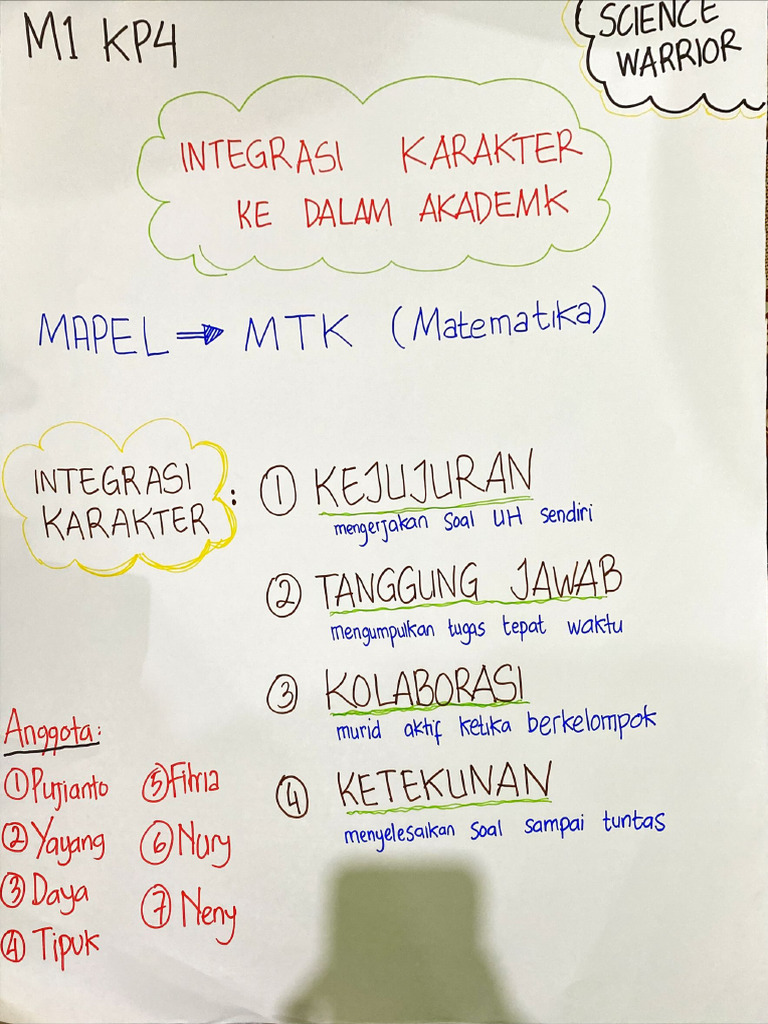 M1 KP4
SCIENCE
WARRIOR
INTEGRASI KARAKTER
KE DALAM AKADEMK
MAPEL ⇒ MTK (Matematika)
INTEGRASI
KARAKTER :
① KEJUJURAN
mengerjakan soal UH sendiri
② TANGGUNG JAWAB
mengumpulkan tugas tepat waktu
③ KOLABORASI
murid aktif ketika berkelompok
④ KETEKUNAN
menyelesaikan soal sampai tuntas
Anggota:
① Pujianto
② Yayang
③ Daya
④ Tipuk
⑤ Fitria
⑥ Nury
⑦ Neny